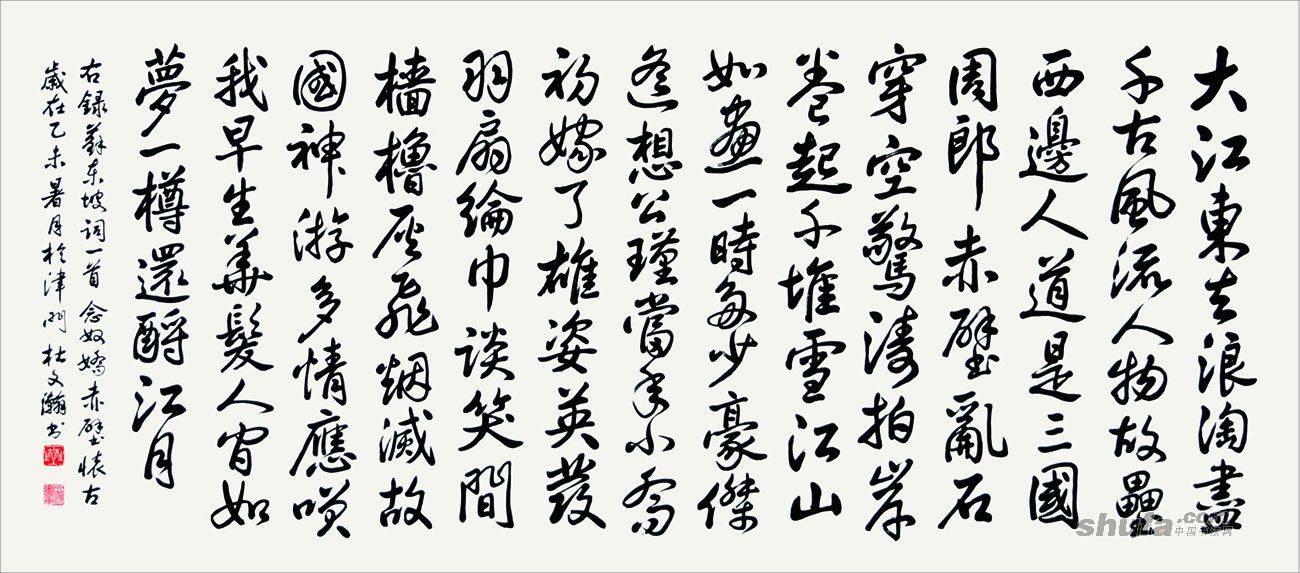 大江東去浪淘盡
千古風流人物故壘
西邊人道是三國
周郎赤壁亂石
穿空驚濤拍岸
卷起千堆雪江山
如畫一時多少豪傑
遙想公瑾當年小喬
初嫁了雄姿英發
羽扇綸巾談笑間
檣櫓灰飛烟滅故
國神游多情應咲
我早生華髮人間如
夢一樽還酹江月
右録蘇東坡詞一首念奴嬌赤壁懷古
歲在乙未暑月於津門杜文瀚書
shufa.com
中国书法网